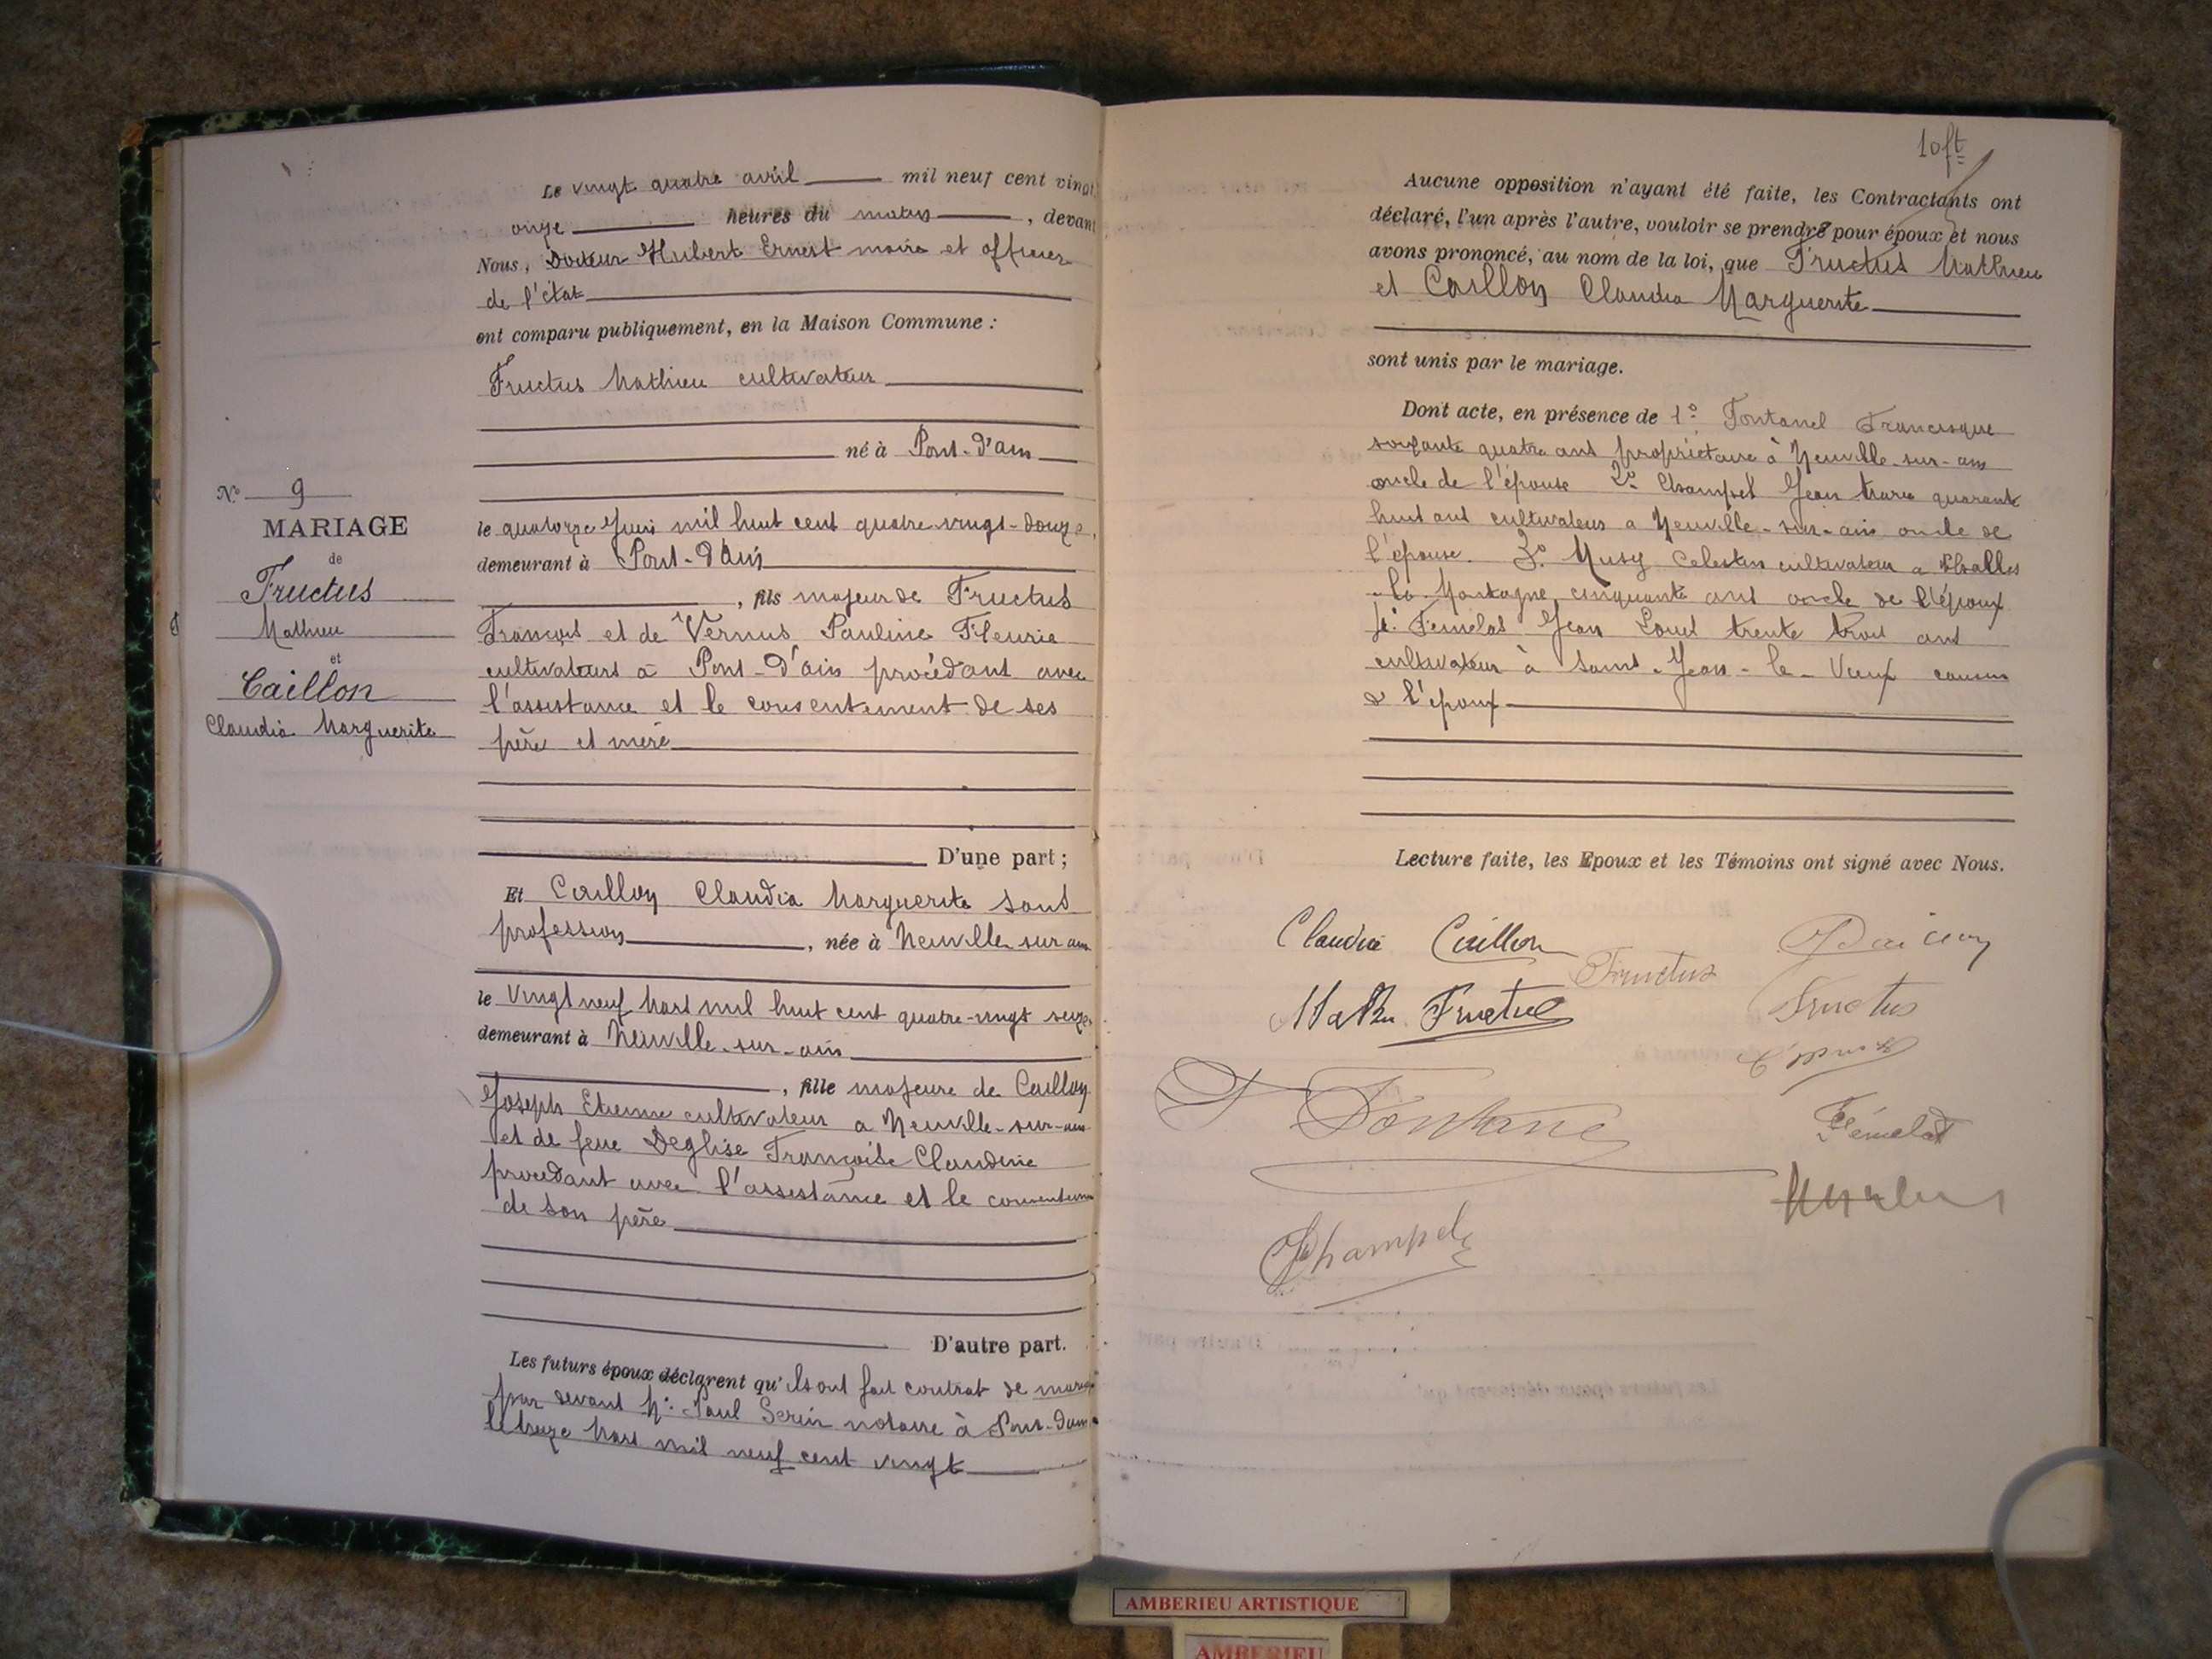 Le vingt quatre avril mil neuf cent vingt
onze heures du matin, devant
Nous, Docteur Hubert Ernest maire et officier
de l'état
ont comparu publiquement, en la Maison Commune :
Fructus Mathieu cultivateur
né à Pont-d'ain
le quatorze Juin mil huit cent quatre vingt-douze,
demeurant à Pont-d'ain
, fils majeur de Fructus
François et de Vernus Pauline Fleurie
cultivateurs à Pont-d'ain procédant avec
l'assistance et le consentement de ses
père et mère
D'une part ;
N° 9
MARIAGE
de
Fructus
Mathieu
et
Caillon
Claudia Marguerite
Et Caillon Claudia Marguerite sans
profession, née à Neuville sur ain
le vingt neuf Mars mil huit cent quatre-vingt seize
demeurant à Neuville-sur-ain
, fille majeure de Caillon
Joseph Etienne cultivateur a Neuville-sur-ain
et de feue Deglise Françoise Claudine
procédant avec l'assistance et le consentem
de son père
D'autre part.
Les futurs époux déclarent qu'ils ont fait contrat de mariage
par devant Me Paul Serin notaire à Pont-d'ain
le treize Mars mil neuf cent vingt
10 ft
Aucune opposition n'ayant été faite, les Contractants ont
déclaré, l'un après l'autre, vouloir se prendre pour époux et nous
avons prononcé, au nom de la loi, que Fructus Mathieu
et Caillon Claudia Marguerite
sont unis par le mariage.
Dont acte, en présence de 1° Fontanel Francisque
soixante quatre ans propriétaire à Neuville-sur-ain
oncle de l'épouse 2° Champel Jean Marie quarante
huit ans cultivateur a Neuville-sur-ain oncle de
l'épouse. 3° Musy Celestin cultivateur a Challes
la Montagne, cinquante ans oncle de l'époux
4° Femelat Jean Louis trente trois ans
cultivateur à Saint-Jean-le-Vieux cousin
de l'époux
Lecture faite, les Epoux et les Témoins ont signé avec Nous.
Claudia Caillon
Fructus
Fructus
Fontanel
Fémelat
Champel
AMBERIEU ARTISTIQUE
AMBERIEU